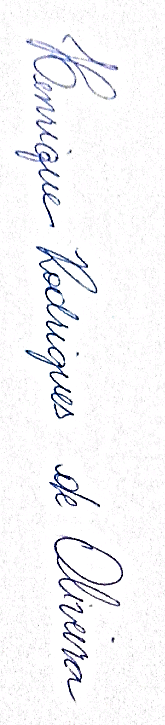 Henrique Rodrigues de Oliveira